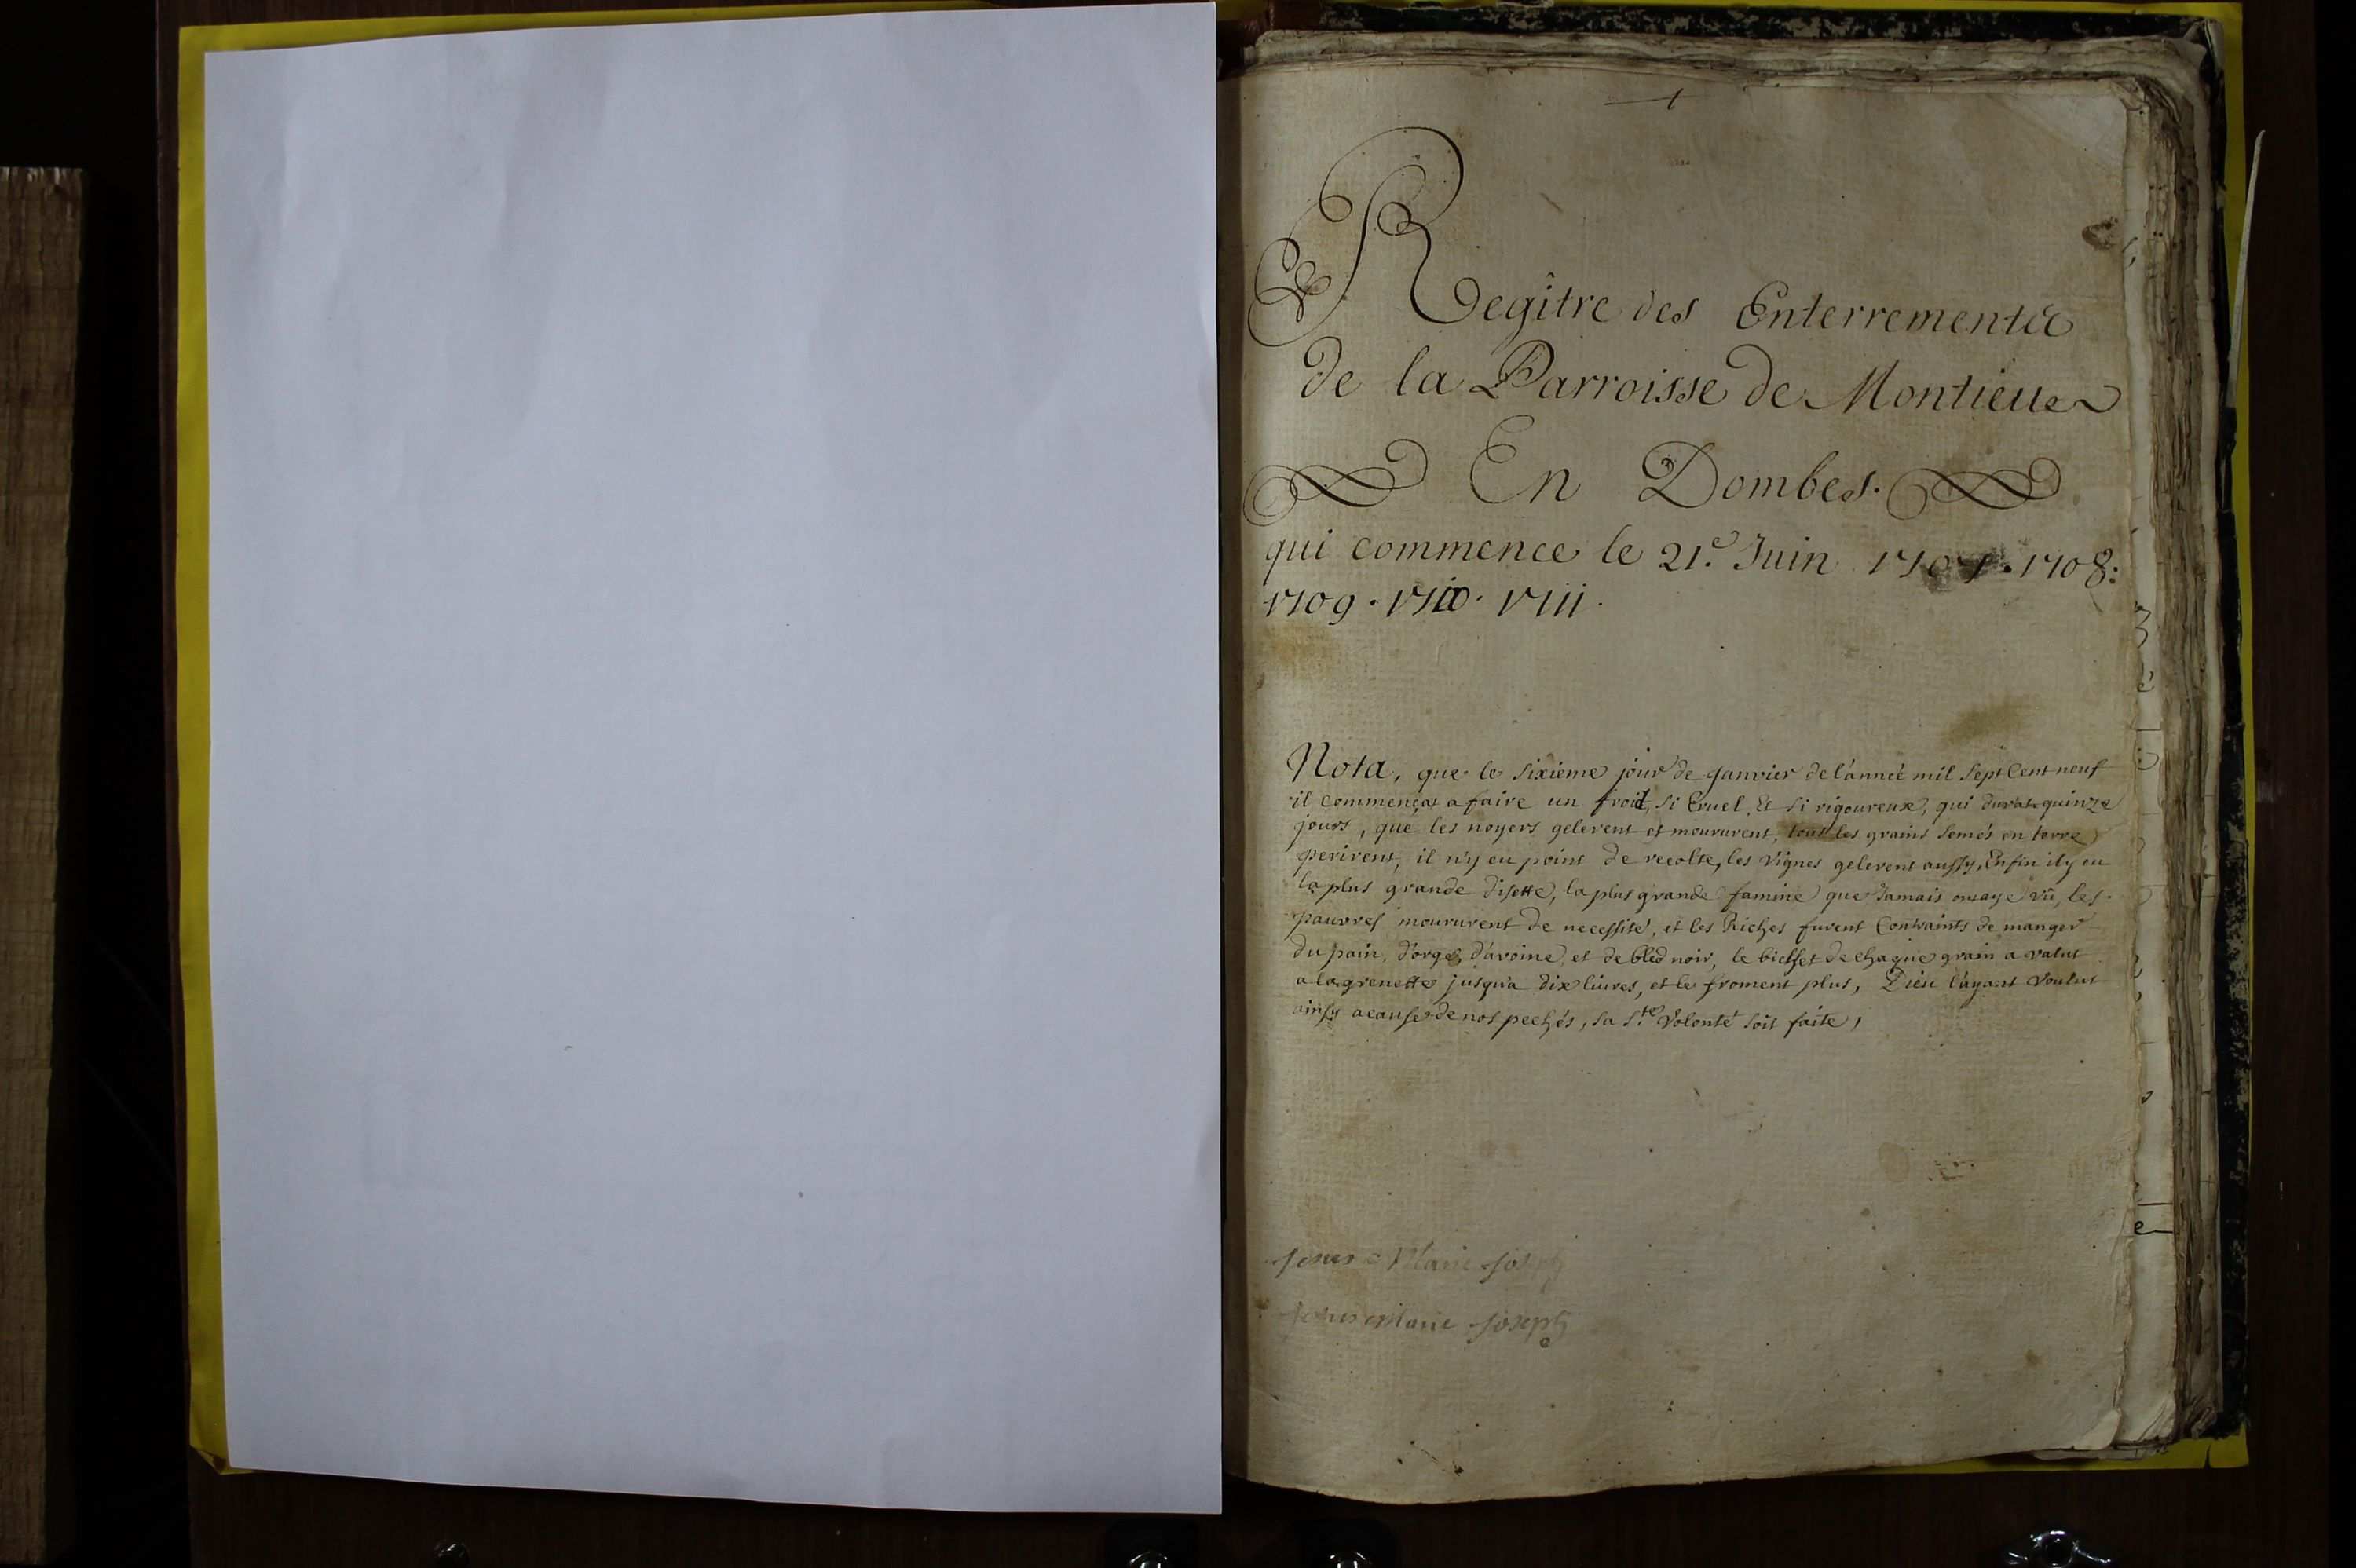 Regître des Enterrements
de la Parroisse de Montieux
En Dombes.
qui commence le 21.e Juin 1707. 1708:
1709. 1710. 1711.
Nota, que le sixième jour de janvier de l'année mil sept Cent neuf
il commençat a faire un froid, si Cruel, Et si rigoureux, qui durat quinze
jours, que les noyers gelerent et moururent, tout les grains semés en terre
perirent, il n'y eu point de recolte, les vignes gelerent aussy, Enfin il y eu
la plus grande disette, la plus grande famine que Jamais on aye vû, les
pauvres moururent de necessité, et les Riches furent Contraints de manger
du pain, d'orge, d'avoine, et de bled noir, le bichet de chaque grain a valut
a la grenette jusqu'a dix livres, et le froment plus, Dieu l'ayant voulut
ainsy a cause de nos pechés, sa S.te Volonté soit faite,
Jesus Marie Joseph
Jesus Marie Joseph